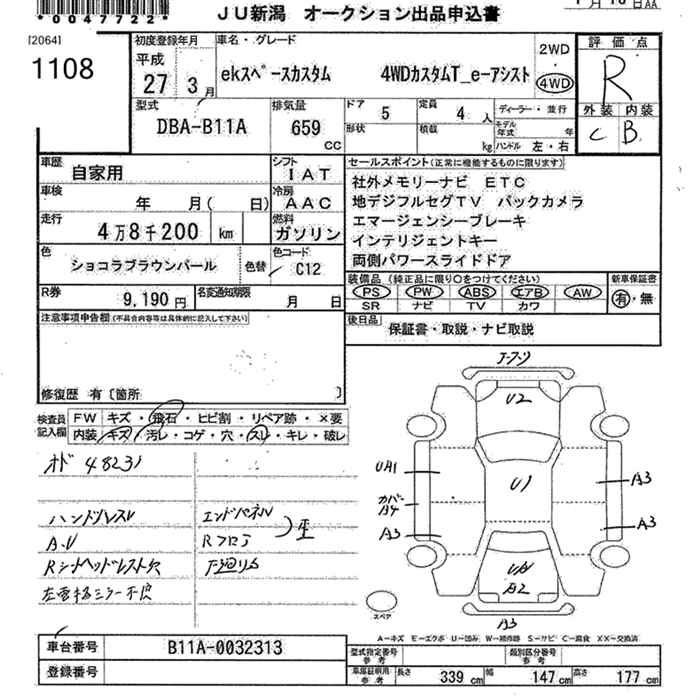 *0047722*
JU新潟 オークション出品申込書
[2064]
1108
初度登録年月
平成
27年 3月
車名・グレード
ekスペースカスタム 4WDカスタムT_e-アシスト
2WD
4WD
評価点
R
外装 内装
C B
型式
DBA-B11A
排気量
659
CC
ドア 5
定員 4 人
ディーラー・並行
形状
積載 kg
モデル年式 年
ハンドル 左・右
車歴
自家用
シフト
IAT
車検
年 月( 日)
冷房
AAC
走行
4万8千200 km
燃料
ガソリン
色
ショコラブラウンパール
色替
色コード
C12
R券
9,190 円
名変通知期限
月 日
セールスポイント(正常に機能するものに限ります)
社外メモリーナビ ETC
地デジフルセグTV バックカメラ
エマージェンシーブレーキ
インテリジェントキー
両側パワースライドドア
装備品(純正品に限り○をつけてください)
PS PW ABS エアB AW
SR ナビ TV カワ
新車保証書
有・無
後日品
保証書・取説・ナビ取説
注意事項申告欄(不具合内容等は具体的に記入して下さい)
修復歴 有〔箇所 〕
検査員記入欄
FW キズ・飛石・ヒビ割・リペア跡・×要
内装 キズ・汚レ・コゲ・穴・スレ・キレ・破レ
オド 48231
ハンドルスレ
A.U
Rシートヘッドレスト欠
左電格ミラー不良
エンドパネル
Rフロア
歪
U2
UA1
U1
A3
カバー
A4
A3
A3
A2
A3
スペア
A-キズ E-エクボ U-凹み W-補修跡 S-サビ C-腐食 XX-交換済
車台番号
B11A-0032313
登録番号
型式指定番号
参考
類別区分番号
参考
車庫証明用
参考
長さ 339 cm 幅 147 cm 高さ 177 cm